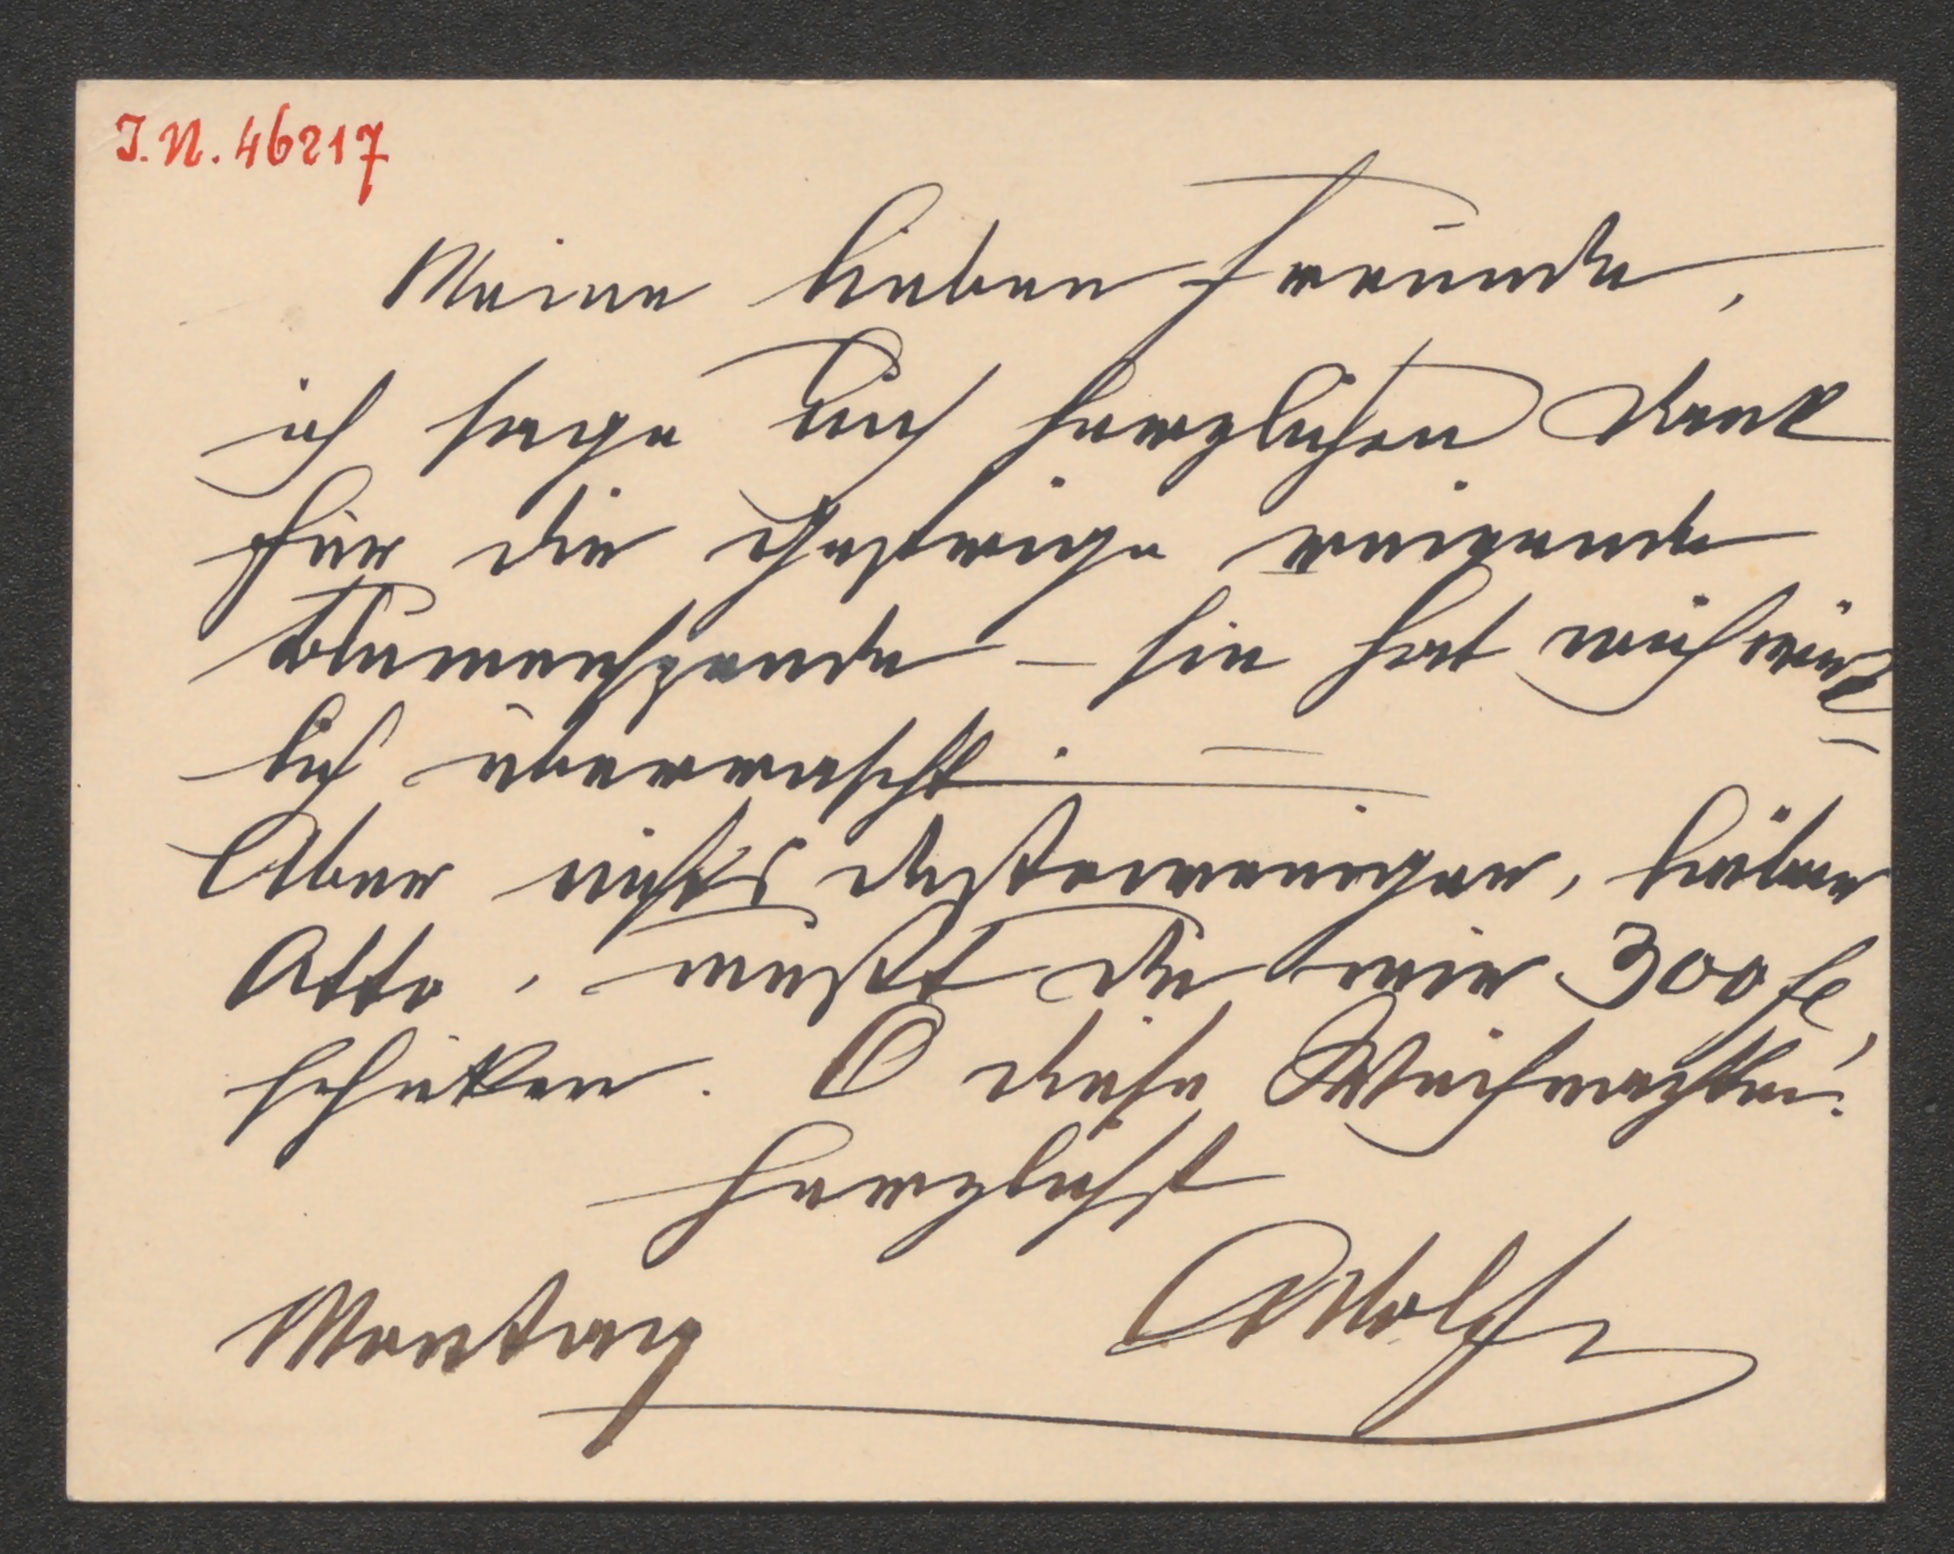 I.N. 46217
Meine lieben Freunde,
ich sage Euch herzlichen Dank
für die gestrige reizende
Blumenspende – sie hat mich wirk=
lich überrascht. –
Aber nichts destoweniger, lieber
Otto, mußt Du mir 300 fl,
schicken. O diese Weihnachten.
Herzlichst
Adolf
Montag